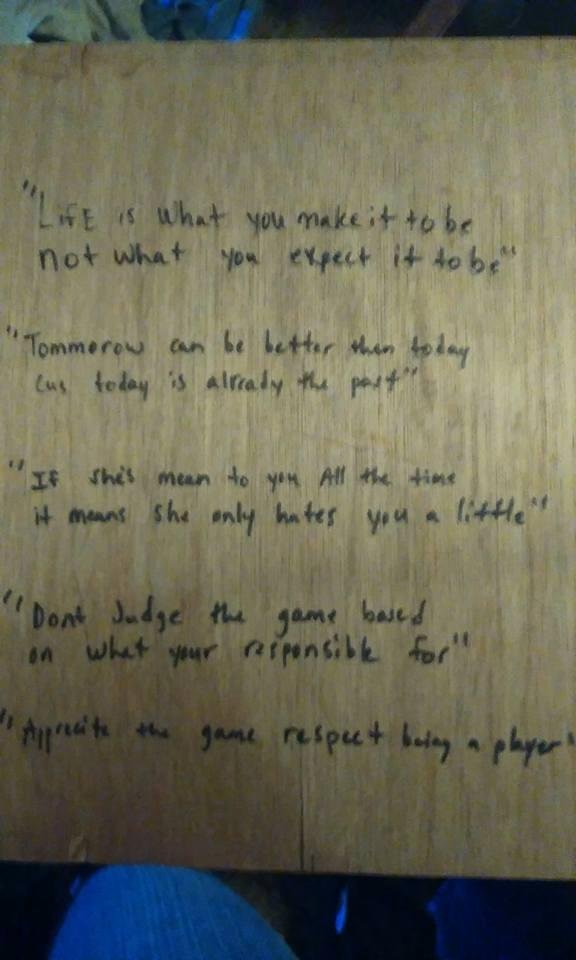 "LiFE is What you make it to be
not what you expect it to be"
"Tommorow can be better then today
cus today is already the past"
"IF she's mean to you All the time
it means she only hates you a little"
"Dont Judge the game based
on what your responsible for"
"Apprecite the game respect being a player"